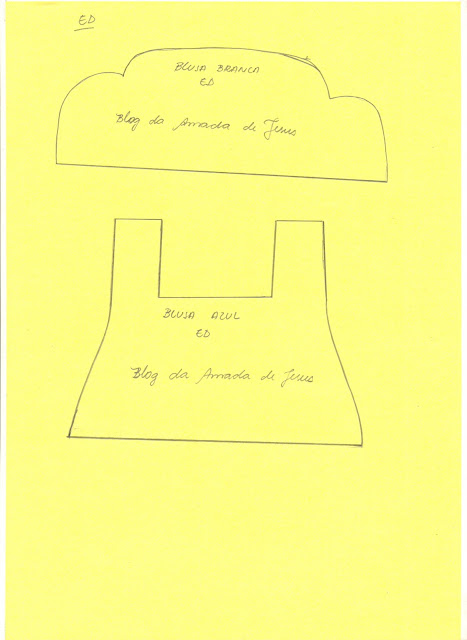 ED
BLUSA BRANCA
ED
Blog da Amada de Jesus
BLUSA AZUL
ED
Blog da Amada de Jesus